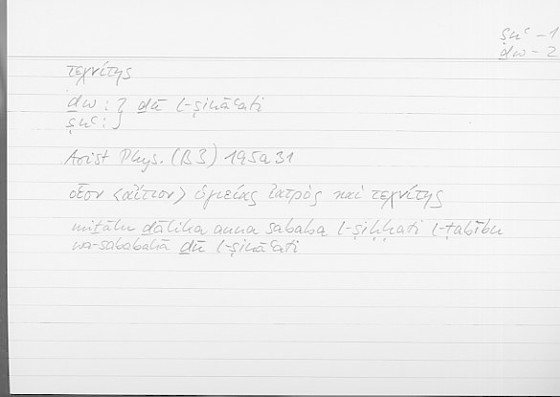 ṣnʿ - 1
ḏw - 2
τεχνίτης
ḏw : } ḏū l-ṣināʿati
ṣnʿ : }
Arist Phys. (B3) 195a31
οἷον <αἴτιον> ὑγιείας ἰατρὸς καὶ τεχνίτης
miṯālu ḏālika anna sababa l-ṣiḥḥati l-ṭabību
wa-sababahā ḏū l-ṣināʿati